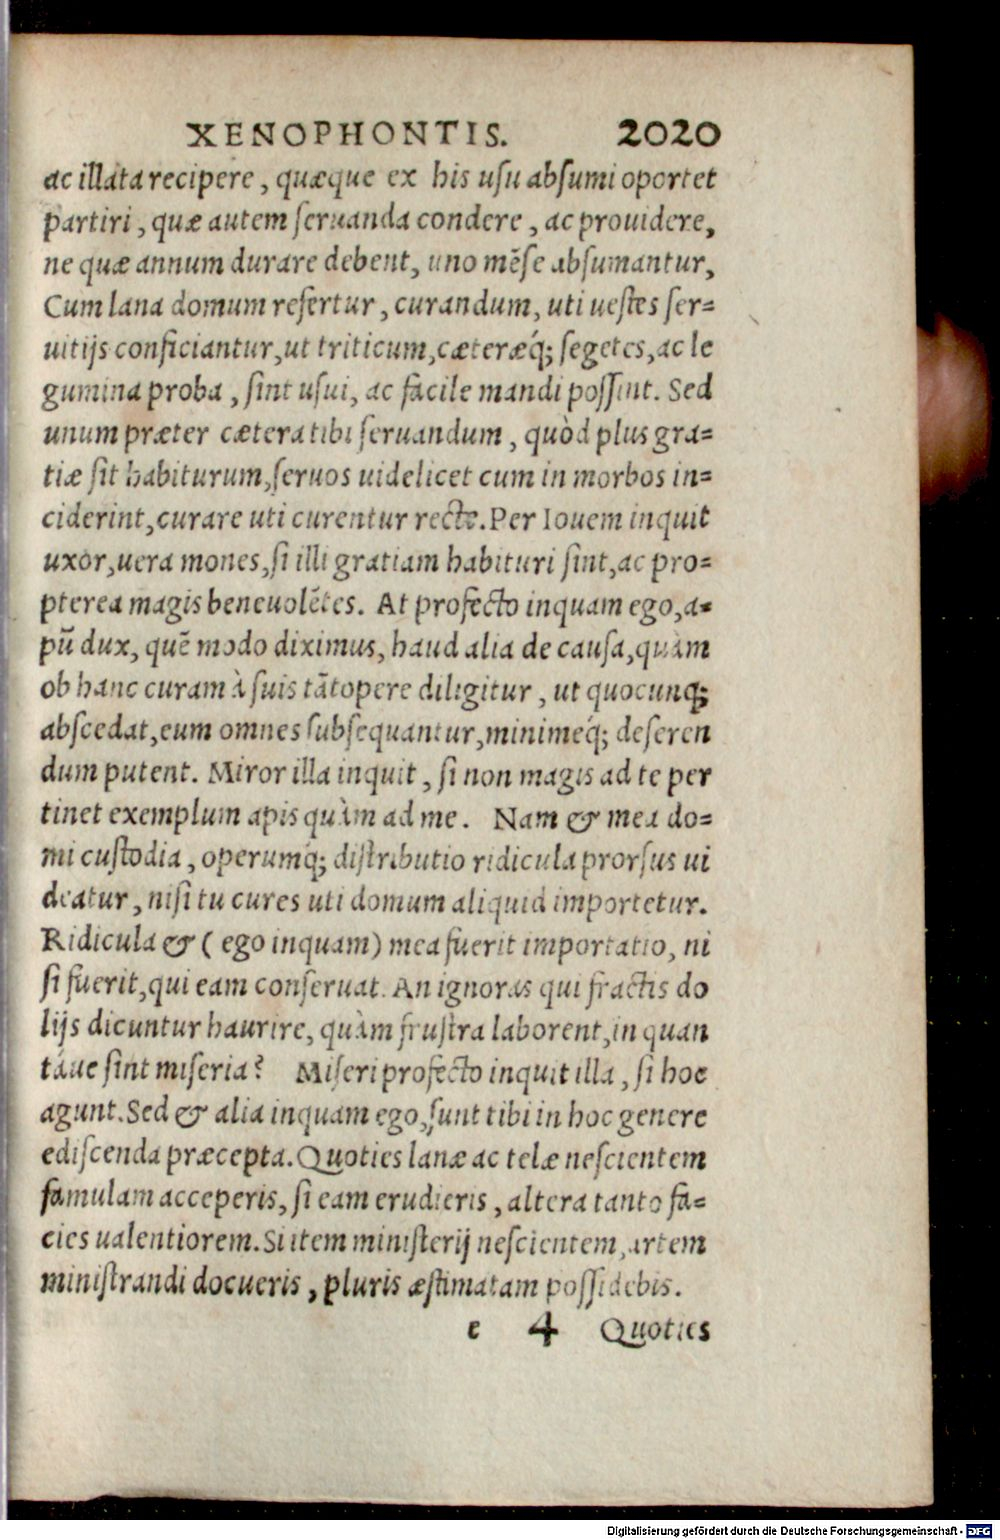 XENOPHONTIS. 2020
ac illata recipere, quæque ex his usu absumi oportet
partiri, quæ autem seruanda condere, ac prouidere,
ne quæ annum durare debent, uno mēse absumantur,
Cum lana domum refertur, curandum, uti uestes ser=
uitijs conficiantur, ut triticum, cæteræq́; segetes, ac le
gumina proba, sint usui, ac facile mandi possint. Sed
unum præter cætera tibi seruandum, quòd plus gra=
tiæ sit habiturum, seruos uidelicet cum in morbos in=
ciderint, curare uti curentur recte. Per Iouem inquit
uxor, uera mones, si illi gratiam habituri sint, ac pro=
pterea magis beneuolētes. At profecto inquam ego, a=
pū dux, quē modo diximus, haud alia de causa, quàm
ob hanc curam à suis tātopere diligitur, ut quocunq;
abscedat, eum omnes subsequantur, minimeq́; deseren
dum putent. Miror illa inquit, si non magis ad te per
tinet exemplum apis quàm ad me. Nam & mea do=
mi custodia, operumq́; distributio ridicula prorsus ui
deatur, nisi tu cures uti domum aliquid importetur.
Ridicula & ( ego inquam) mea fuerit importatio, ni
si fuerit, qui eam conseruat. An ignoras qui fractis do
lijs dicuntur haurire, quàm frustra laborent, in quan
táue sint miseria? Miseri profecto inquit illa, si hoc
agunt. Sed & alia inquam ego, sunt tibi in hoc genere
ediscenda præcepta. Quoties lanæ ac telæ nescientem
famulam acceperis, si eam erudieris, altera tanto fa=
cies ualentiorem. Si item ministerij nescientem, artem
ministrandi docueris, pluris æstimatam possidebis.
e 4 Quoties
Digitalisierung gefördert durch die Deutsche Forschungsgemeinschaft - DFG